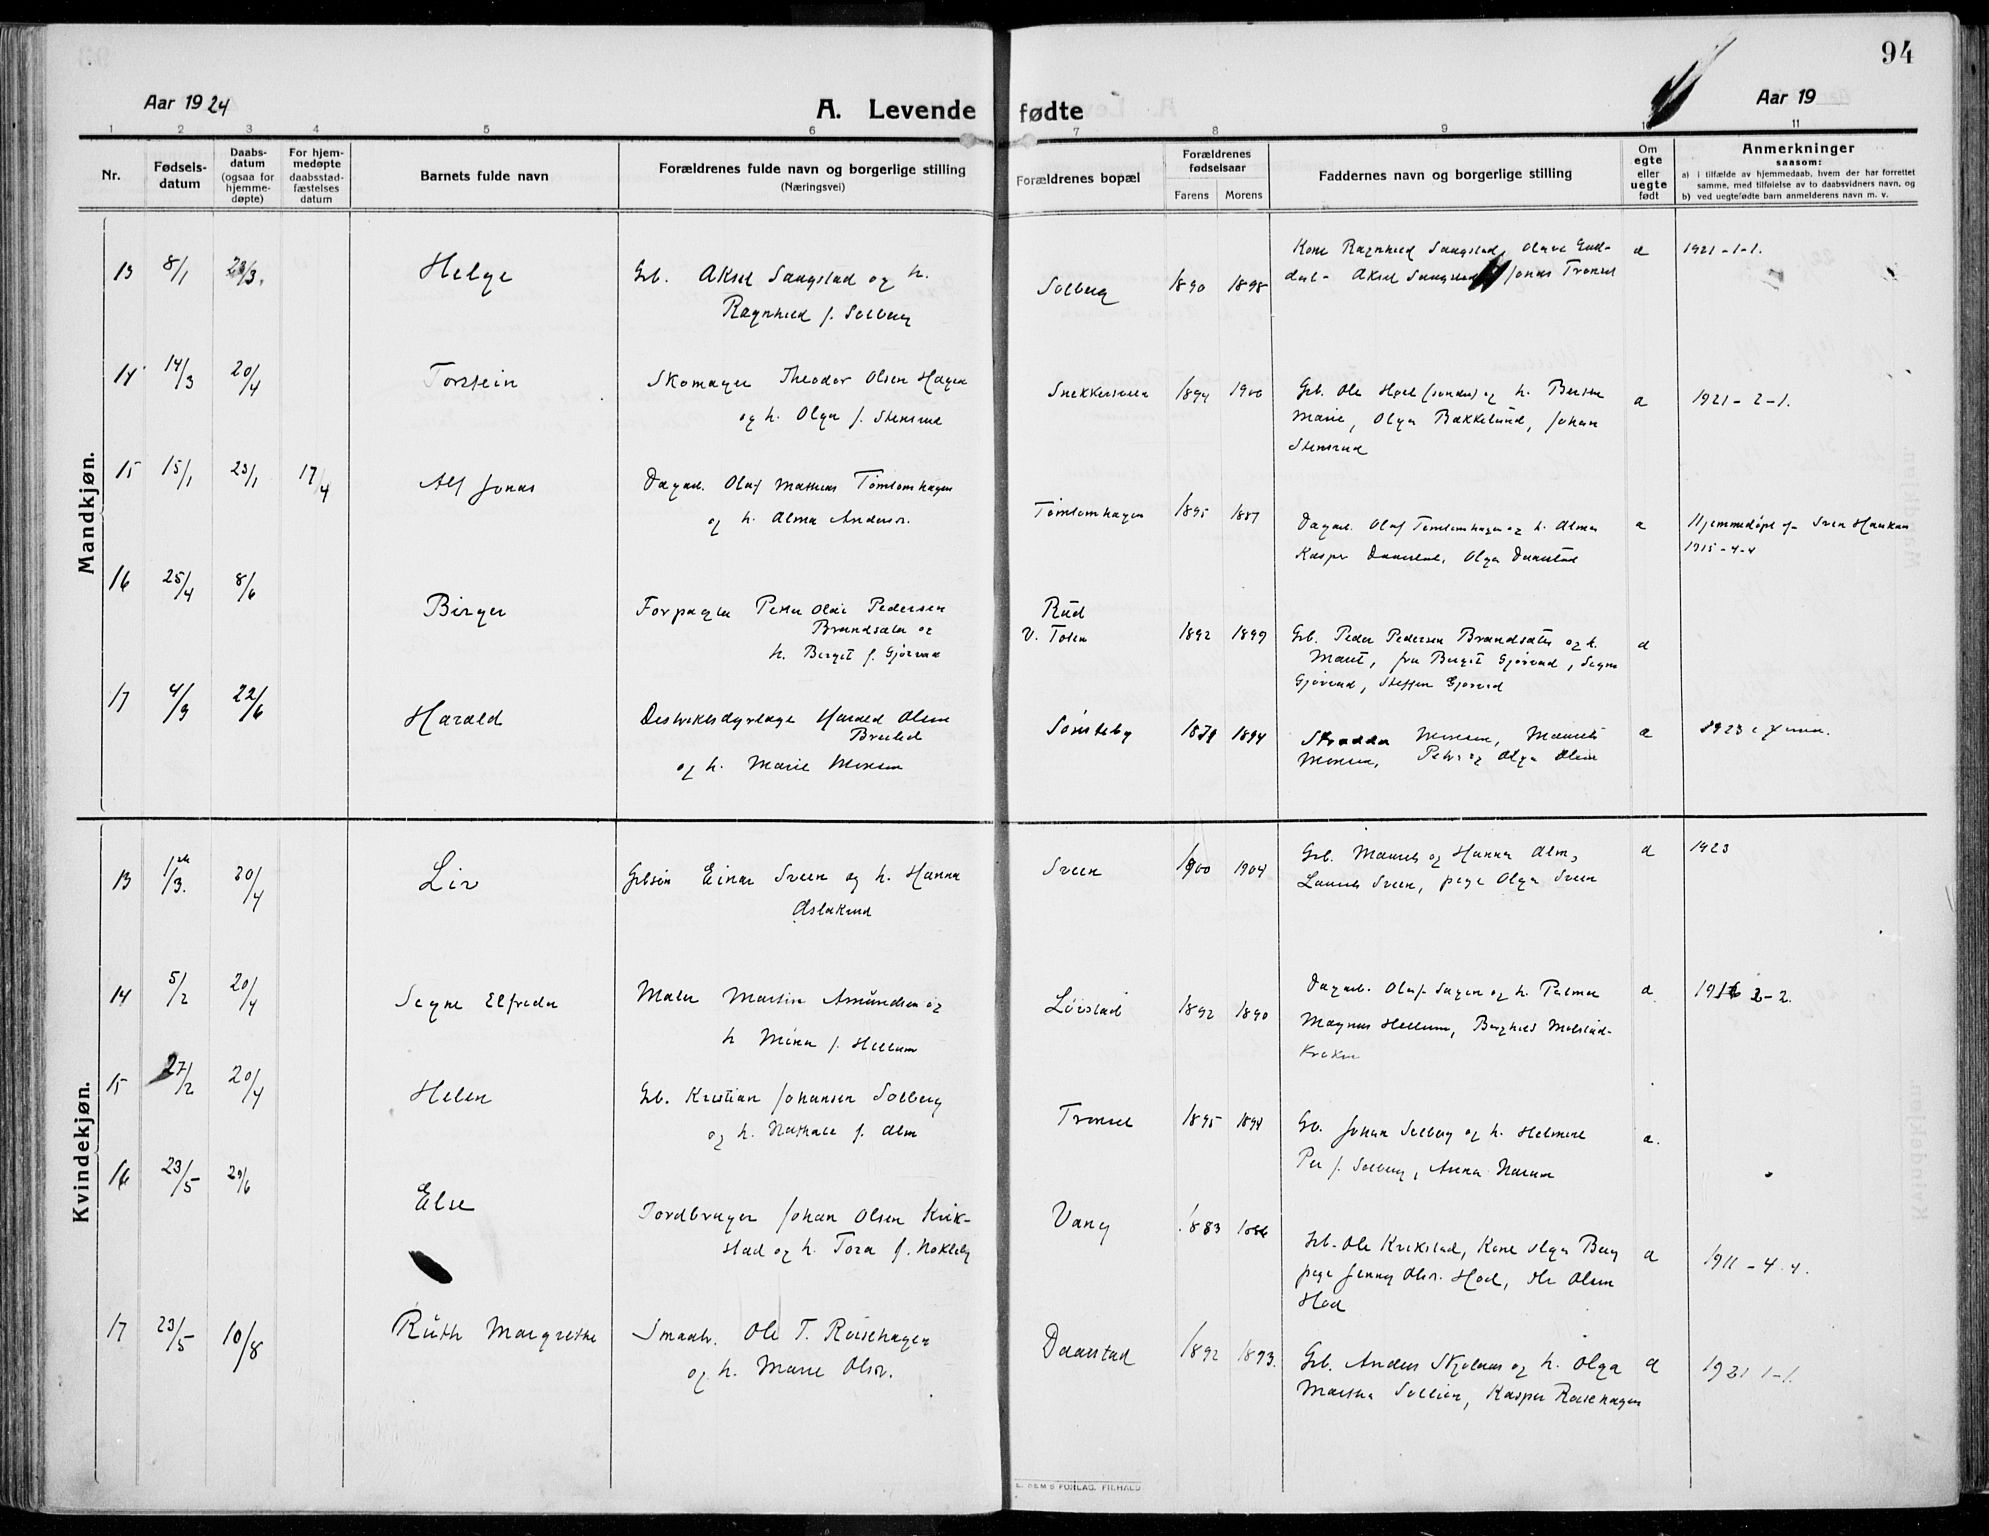 94
Aar 1924
A. Levende fødte
Aar 19
1 2 3 4 5 6 7 8 9 10 11
Nr.
Fødsels-
datum
Daabs-
datum
(ogsaa for
hjemme-
døpte)
For hjem-
medøpte
daabsstad-
fæstelses
datum
Barnets fulde navn
Forældrenes fulde navn og borgerlige stilling
(Næringsvei)
Forældrenes bopæl
Forældrenes
fødselsaar
Farens Morens
Faddernes navn og borgerlige stilling
Om
egte
eller
uegte
født
Anmerkninger
saasom:
a) i tilfælde av hjemmedaab, hvem der har forrettet
samme, med tilføielse av to daabsvidners navn, og
b) ved uegtefødte barn anmelderens navn m. v.
Mandkjøn.
13 8/1 23/3. Helge
Gb. Aksel Saugstad og h.
Ragnhild f. Solberg
Solberg 1890 1898
Kone Ragnhild Saugstad, Olave
Aksel Saugstad Jonas Tronsel
a 1921-1-1.
14 14/3 20/4 Torstein
Skomager Theodor Olsen Hagen
og h. Olga f. Stensrud
1894 1900
Gb. Ole Hoel (søndre) og h. Berthe
Marie, Olga Bakkelund, Johan
Stensrud
a 1921-2-1.
15 15/1 23/1 17/4 Alf Jonas
Dagarb. Olaf Mathias Tømtomhagen
og h. Alma Andersr.
Tømtomhagen 1895 1887
Dagarb. Olaf Tomtomhagen og h. Alma
Kasper Daarstad, Olga Daarstad
a Hjemmedøpt af Svea Haakan
1915-4-4
16 25/4 8/6 Birger
Forpagter Petter Olai Pedersen
Brandsæter og
h. Berget f. Gjørvad
Rud
V. Toten 1892 1899
Gb. Peder Pedersen Brandsæter og h.
Marit, fru Berget Gjørvad, Signe
Gjørvad, Steffen Gjørvad
a
17 4/3 22/6 Harald
Distriktsdyrlæge Harald Olsen
Breilid
og h. Marie Monsen
Sønsteby 1879 1894
Skrædder Monsen, Maurits
Monsen, Petra og Olga Olsen
a 1923
Kvindekjøn.
13 1/3. 20/4 Liv
Gbsøn Einar Sveen og h. Hanna
Aslaksrud
Sveen 1900 1904
Gb. Maurits og Hanna Alm,
Laurits Sveen, pige Olga Sveen
a 1923
14 5/2 20/4 Signe Elfreda
Maler Martin Amundsen og
h Mina f. Hellum
Løvstad 1892 1890
Dagarb. Olaf Sagen og h. Palma
Magnus Hellum, Berghild Melstad-
a 2-2.
15 27/2 20/4 Helen
Gb. Kristian Johansen Solberg
og h. Nathalie f. Alm
Tronsel 1895 1894
Gb. Johan Solberg og h. Helmine
Per f. Solberg, Anna Narum
a.
16 23/5 29/6 Else
Jordbruger Johan Olsen Krik-
stad og h. Tora f. Nøkleby
Vang 1883 1886
Gb. Ole Krikstad, Kone Olga Berg
pige Jenny Olsr. Hoel, Ole Olsen
Hoel
a 1911-4.4.
17 23/5 10/8 Ruth Margrethe
Smaabr. Ole T. Roisehagen
og h. Marie Olsr.
Daarstad 1892 1893.
Gb. Anders Skjelnes og h. Olga
Martha Sollien, Kasper Roisehagen
a 1921 1-1.